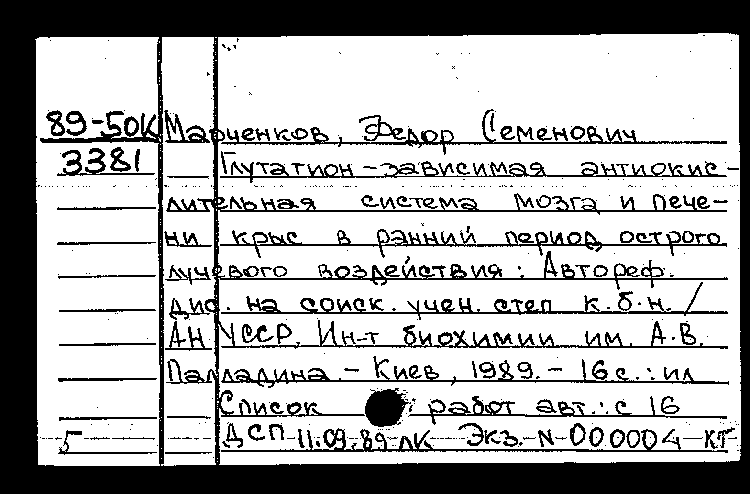 89-50К Марченков, Федор Семенович
3381 Глутатион-зависимая антиокис-
лительная система мозга и пече-
ни крыс в ранний период острого
лучевого воздействия: Автореф.
дис. на соиск. учен. степ к.б.н. /
АН УССР. Ин-т биохимии им. А.В.
Палладина. - Киев, 1989. - 16 с.: ил
Список работ авт.: с 16
5 ДСП 11.09.89 ЛК Экз. N 000004 КТ